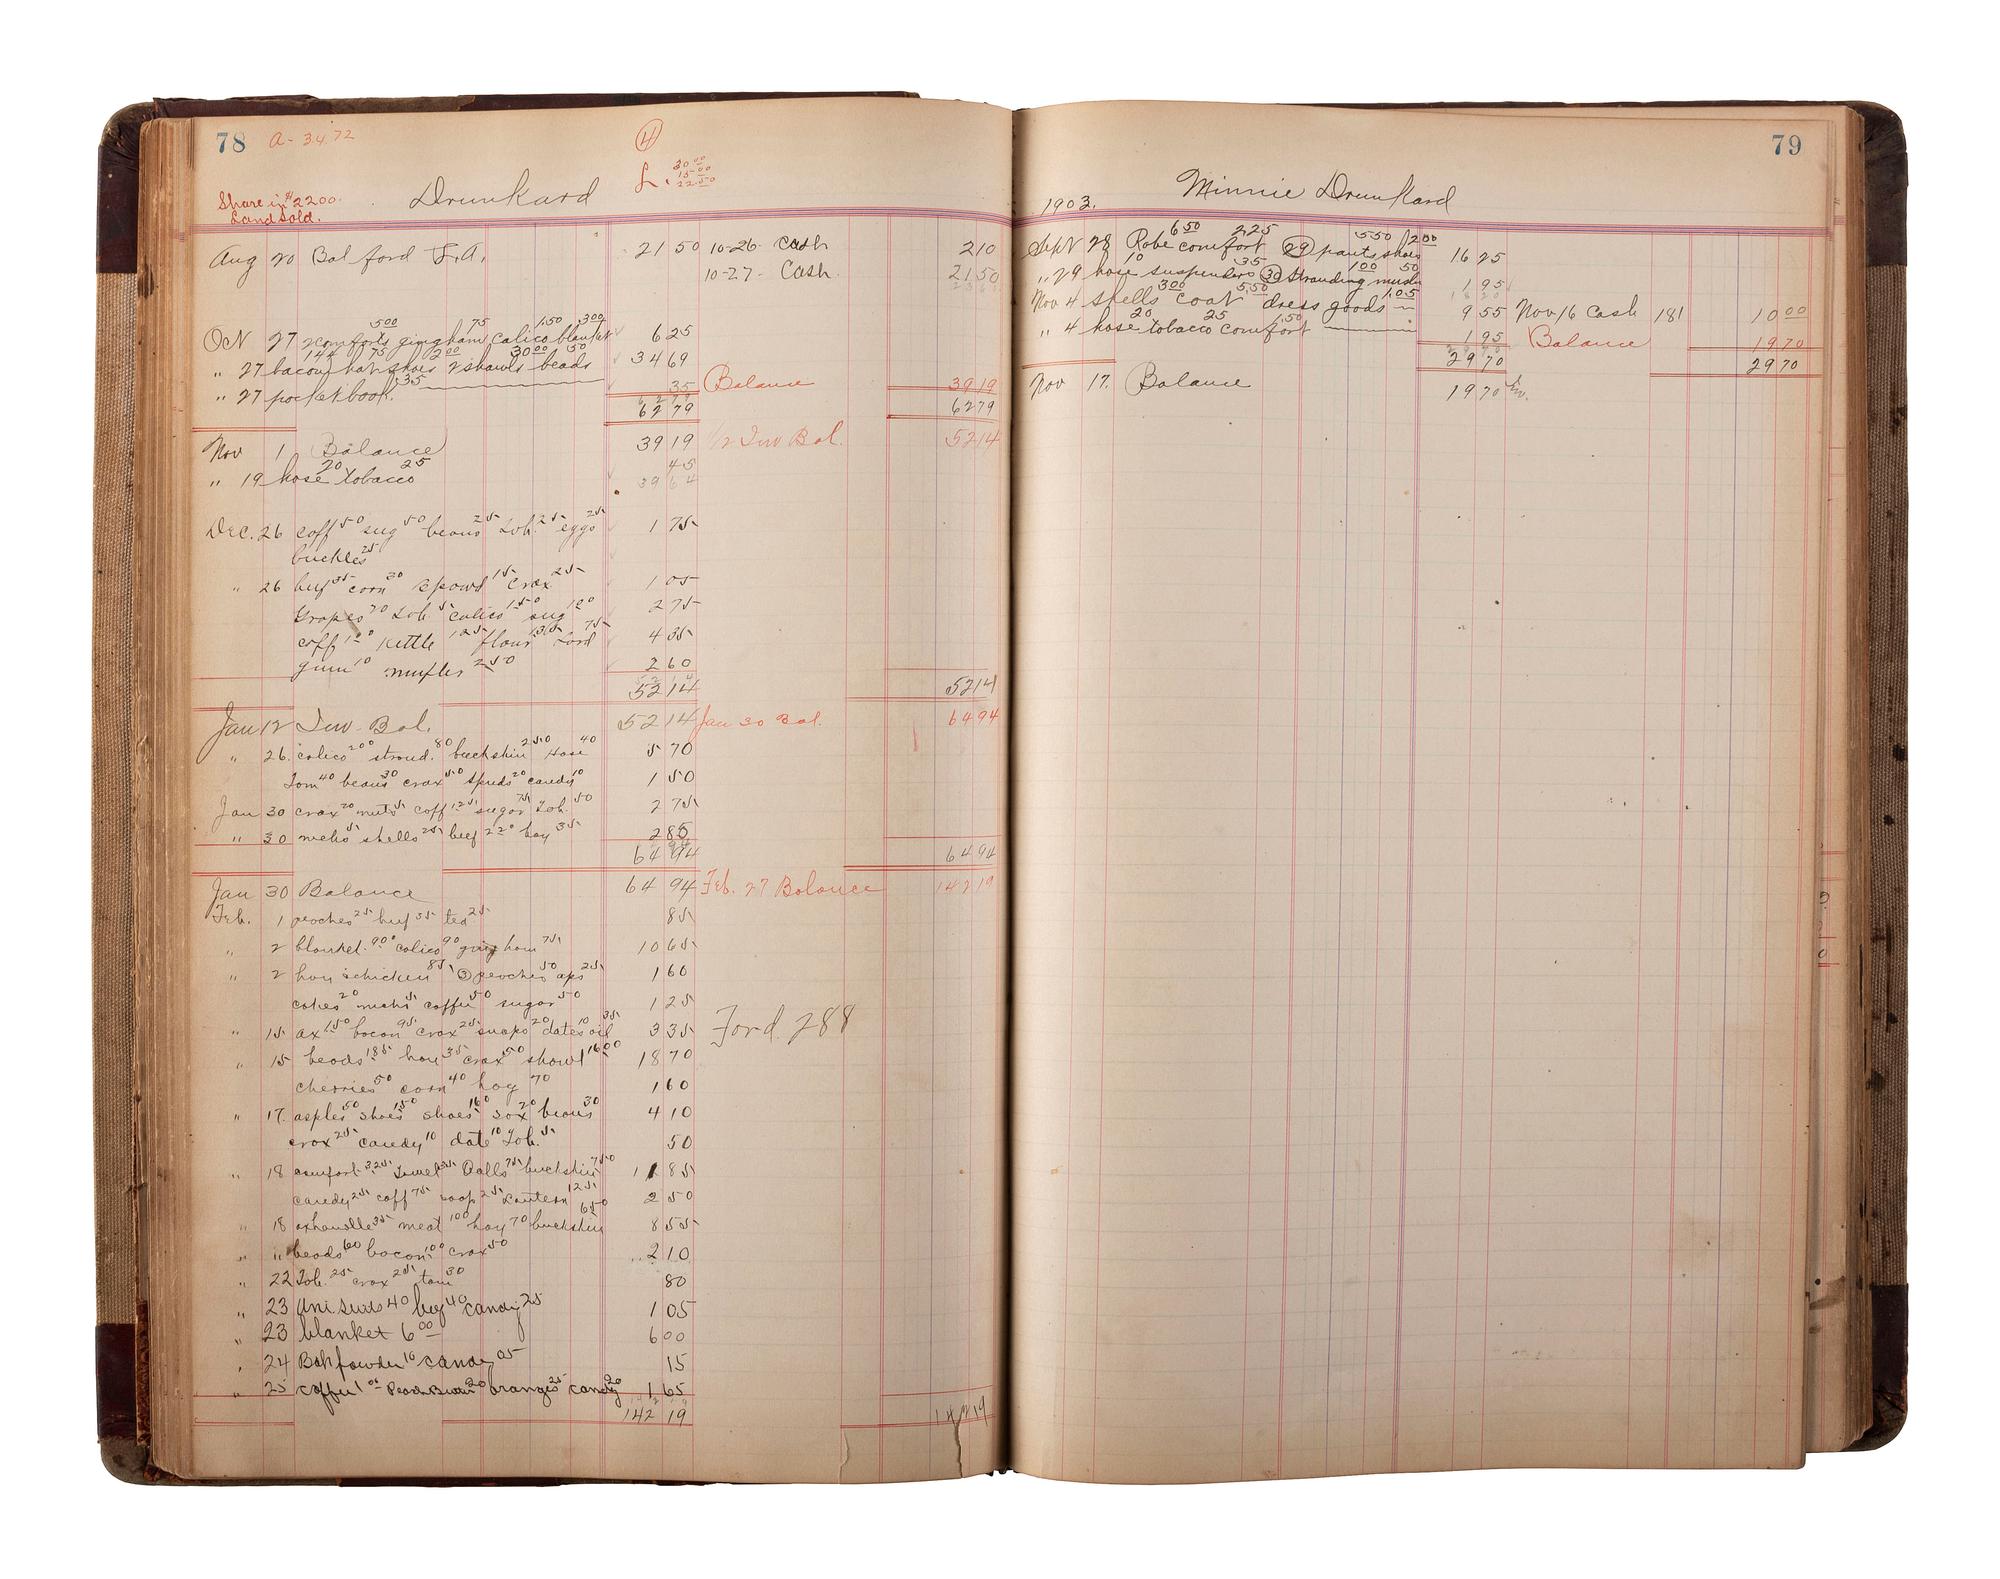 78 A- 34.72
4
L. 30.00
15.00
22.50
Share in $2200.
Land Sold.
Drunkard
Aug 20 Bal ford L.A. 21 50 10-26- Cash 2 10
10-27- Cash 21 50
Oct 27 2 comforts 5.00 gingham 75 calico 1.50 blanket 3.00 6 25
" 27 bacon 1.44 hat 75 shoes 2.00 2 shawls 30.00 beads 50 34 69
" 27 pocket book. 35 35 Balance 39 19
62 79 62 79
Nov 1 Balance 39 19 1/2 Inv Bal. 52 14
" 19 hose 20 tobacco 25 45
39 64
Dec. 26 coff 50 sug 50 beans 25 Tob. 25 eggs 25 1 75
buckles 25
" 26 beef 35 corn 30 powd 15 crax 25 1 05
Grapes 20 Tob. 5 calico 1.50 sug 1.00 2 75
coff 1.00 Kettle 1.25 flour 1.35 Lard 75 4 35
gum 10 muffler 2.50 2 60
52 14 52 14
Jan 12 Inv. Bal. 52 14 Jan 30 Bal. 64 94
" 26. calico 2.00 stroud. 80 buckskin 2.50 Hose 40 5 70
Tom 40 beans 30 crax 50 spuds 20 candy 10 1 50
Jan 30 crax 20 nuts 5 coff 1.25 sugar 75 Tob. 50 2 75
" 30 mchs 5 shells 25 beef 2.20 hay 35 2 85
64 94 64 94
Jan 30 Balance 64 94 Feb. 27 Balance 142 19
Feb. 1 peaches 25 beef 35 tea 25 85
" 2 blanket. 9.00 calico 90 gingham 75 10 65
" 2 hay chicken 85 3 peaches 50 aps 25 1 60
cakes 20 mchs 5 coffee 50 sugar 50 1 25
" 15 ax 1.50 bacon 95 crax 25 snaps 20 dates 10 oil 35 3 35 Ford. 288
" 15 beads 1.85 hay 35 crax 50 shawl 16.00 18 70
cherries 50 corn 40 hay 70 1 60
" 17. apples 50 shoes 1.50 shoes 1.60 sox 20 beans 30 4 10
crax 25 candy 10 date 10 Tob. 5 50
" 18 comfort 3.25 Towel 35 Balls 75 buckskin 7.50 11 85
candy 25 coff 75 soap 25 Lantern 1.25 2 50
" 18 axhandle 35 meat 1.00 hay 70 buckskin 6.50 8 55
" " beads 60 bacon 1.00 crax 50 2 10
" 22 Tob. 25 crax 25 tom 30 80
" 23 Uni suits 40 beef 40 candy 25 1 05
" 23 blanket 6.00 6 00
" 24 Bak powder 10 candy 05 15
" 25 coffee 1.00 Peach Butter 20 oranges 25 candy 20 1 65
142 19 142 19
79
1903. Minnie Drunkard
Sept 28 Robe 6.50 comfort 2.25 29 pants 5.50 shoes 2.00 16 25
" 29 hose 10 suspenders 35 30 Strouding 1.00 muslin 50 1 95
Nov 4 shells 3.00 coat 5.50 dress goods 1.05 9 55 Nov 16 Cash 181 10 00
" 4 hose 20 tobacco 25 comfort 1.50 1 95 Balance 19 70
29 70 29 70
Nov 17. Balance 19 70